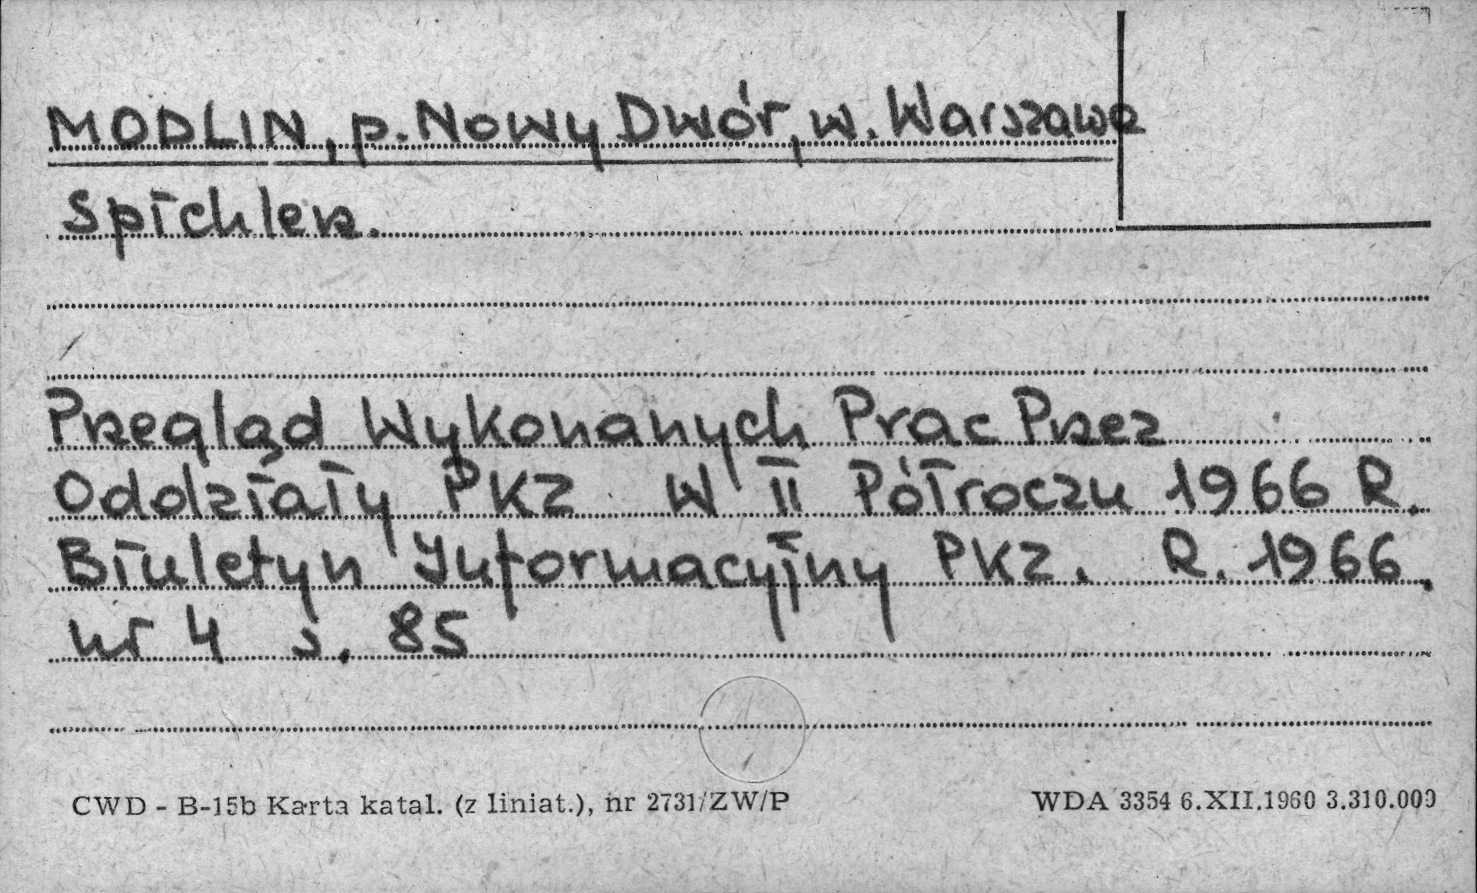 MODLIN, p. Nowy Dwór, w. Warszawa
Spichlerz.
Przegląd Wykonanych Prac Przez
Oddziały PKZ w II Półroczu 1966 R.
Biuletyn Informacyjny PKZ. R. 1966.
nr 4 s. 85
CWD - B-15b Karta katal. (z liniat.), nr 2731/ZW/P WDA 3354 6.XII.1960 3.310.000